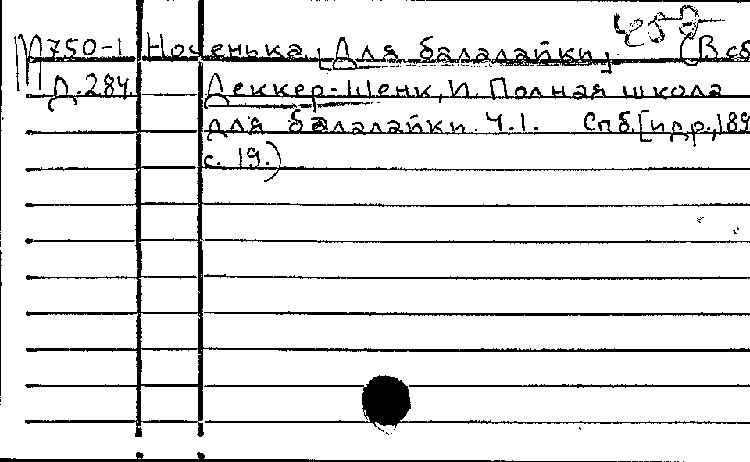 М750-1 Носенька [Для балалайки] (В сб
Д.284 Деккер-Шенк, И. Полная школа
для балалайки. Ч.1. Спб, [и др., 189
с. 19.)